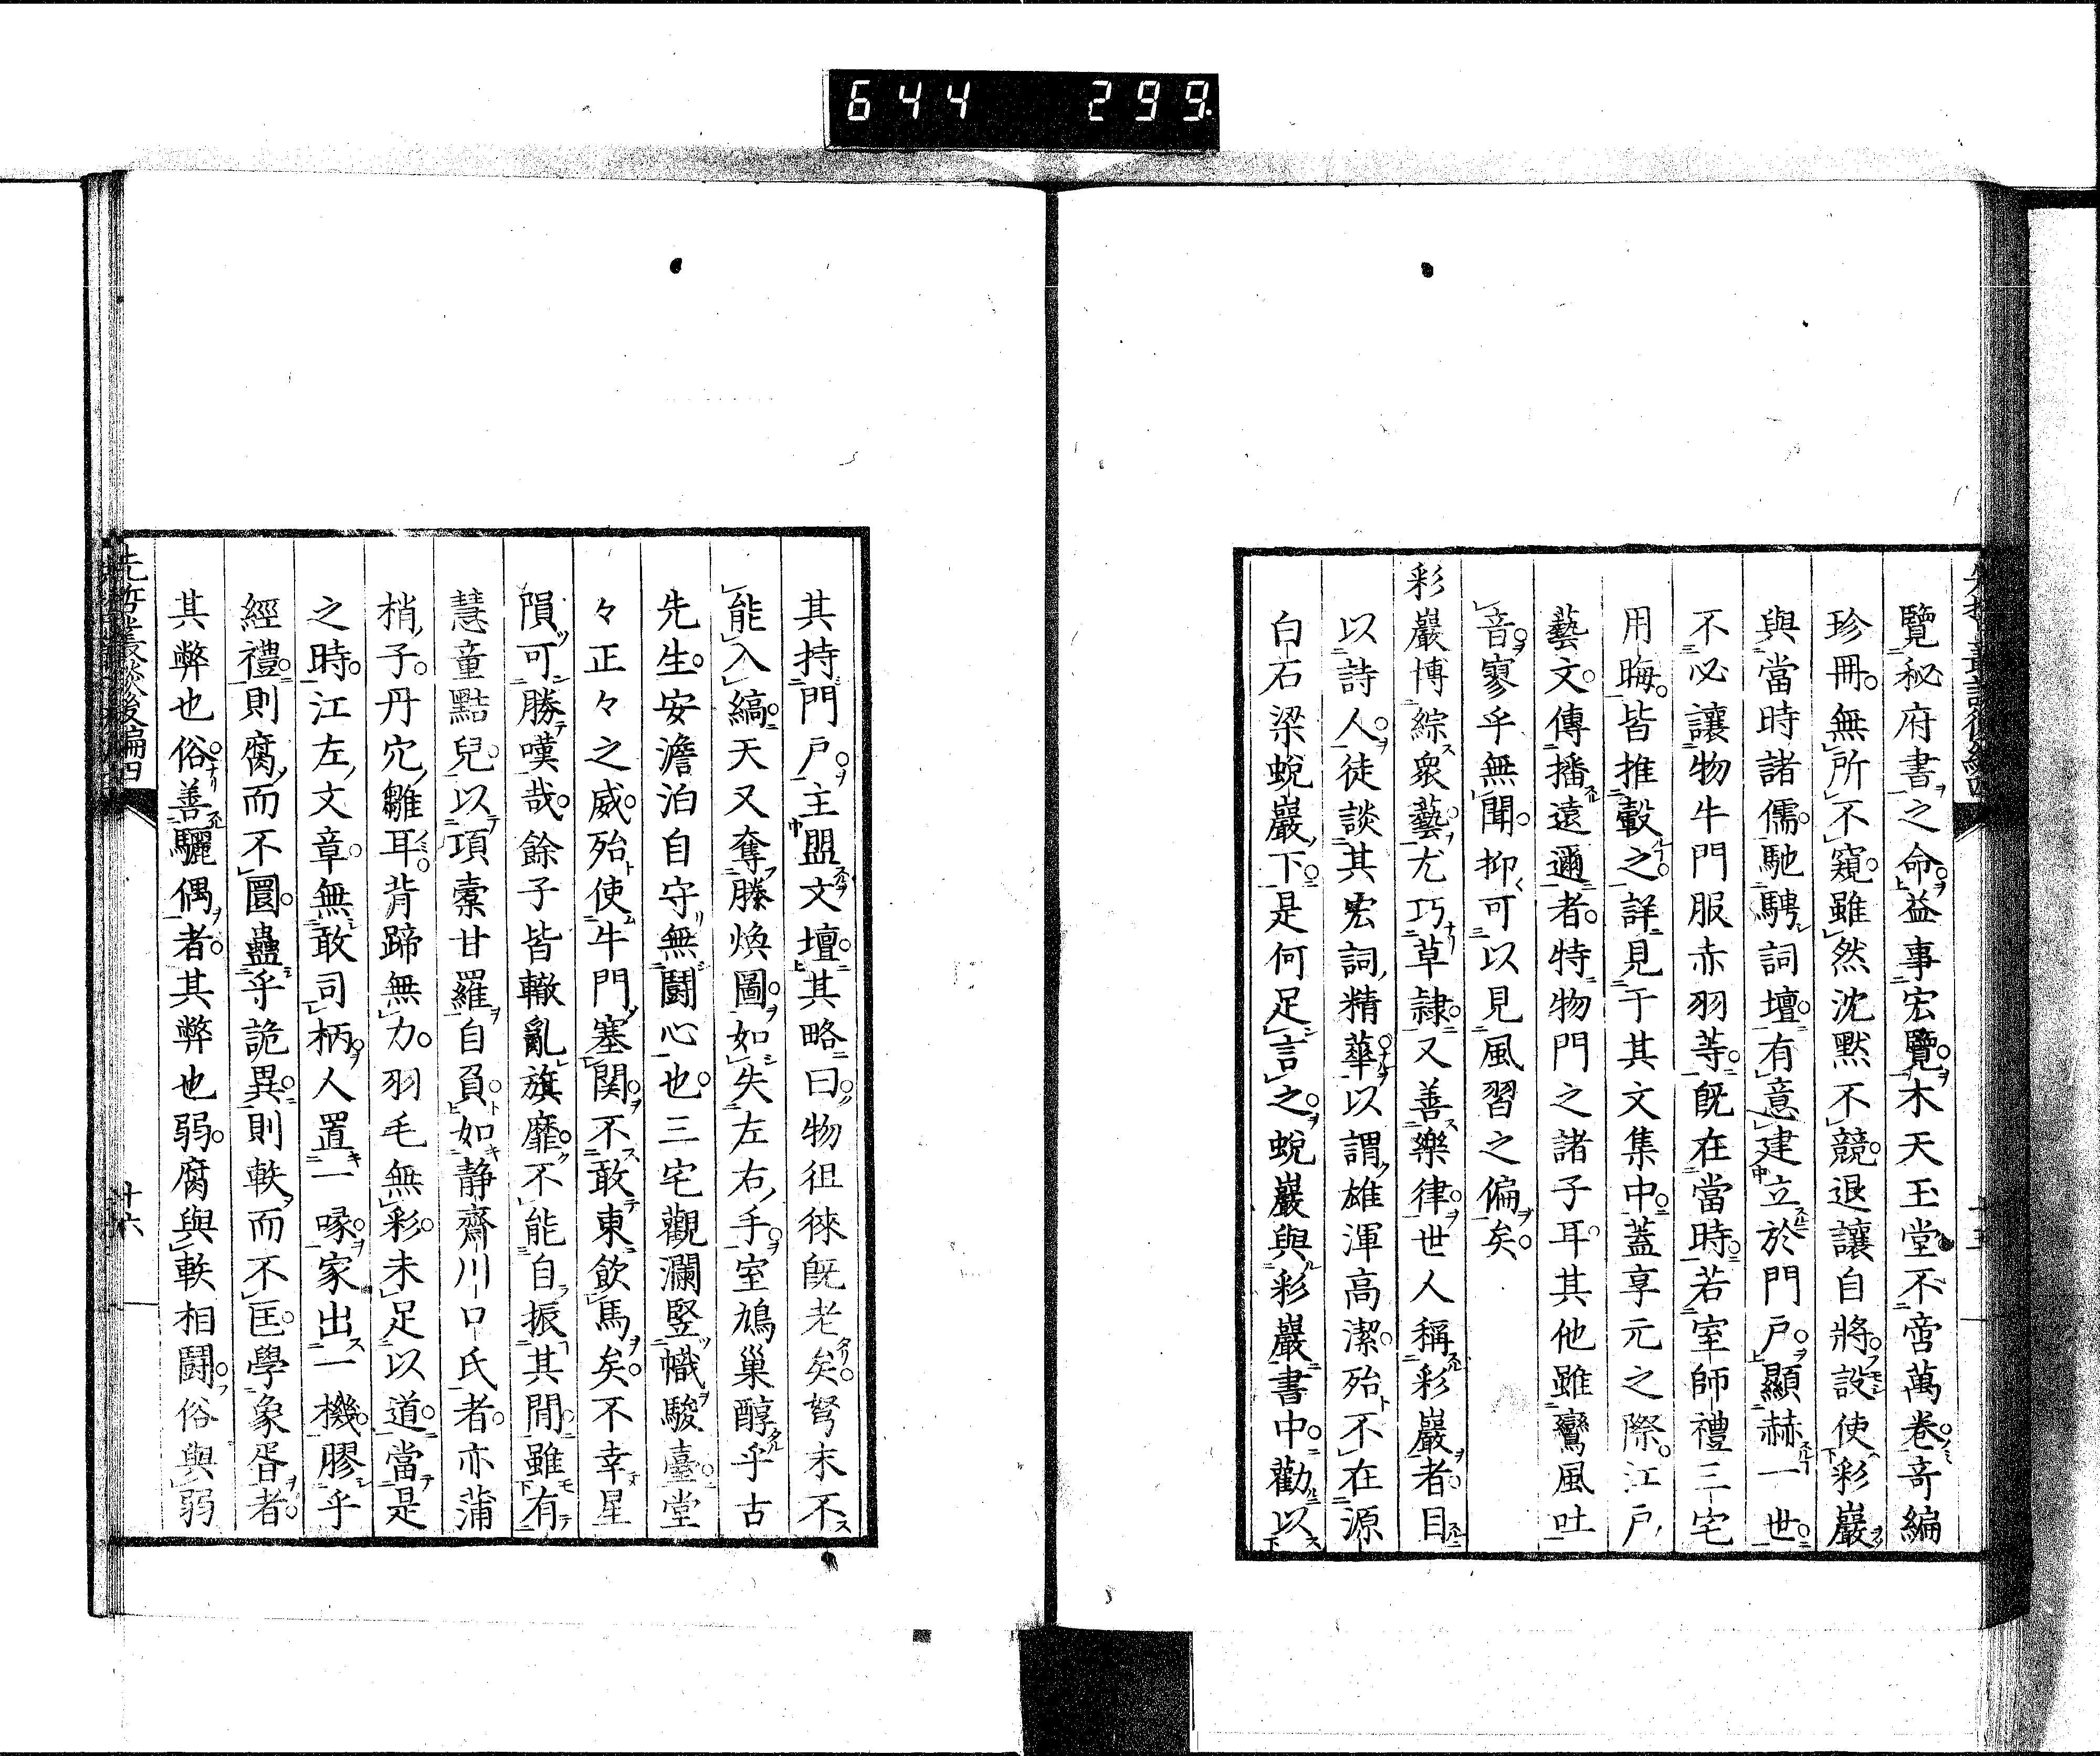 644 299
覽秘府書之命益事宏覽木天玉堂不啻萬卷奇編
珍冊無所不窺雖然沈默不競退讓自將設使彩巖
與當時諸儒馳騁詞壇有意建立於門戶顯赫一世
不必讓物牛門服赤羽等既在當時若室師禮三宅
用晦皆推轂之詳見于其文集中蓋享元之際江戶
藝文傳播遠邇者特物門之諸子耳其他雖鸞風吐
音寥乎無聞抑可以見風習之偏矣
彩巖博綜衆藝尤巧草隷又善樂律世人稱彩巖者目
以詩人徒談其宏詞精華以謂雄渾高潔殆不在源
白石梁蛻巖下是何足言之蛻巖與彩巖書中勸以
其持門戶主盟文壇其略曰物徂徠既老矣弩末不
能入縞天又奪滕煥圖如失左右手室鳩巢醇乎古
先生安澹泊自守無鬪心也三宅觀瀾竪幟駿臺堂
々正々之威殆使牛門塞関不敢東飮馬矣不幸星
隕可勝嘆哉餘子皆轍亂旗靡不能自振其間雖有
慧童黠兒以項橐甘羅自負如静齋川口氏者亦蒲
梢子丹穴雛耳背蹄無力羽毛無彩未足以道當是
之時江左文章無敢司柄人置一喙家出一機膠乎
經禮則腐而不圜蠱乎詭異則軼而不匡學象胥者
其弊也俗善驪偶者其弊也弱腐與軼相鬪俗與弱
先哲叢談後編四
十六